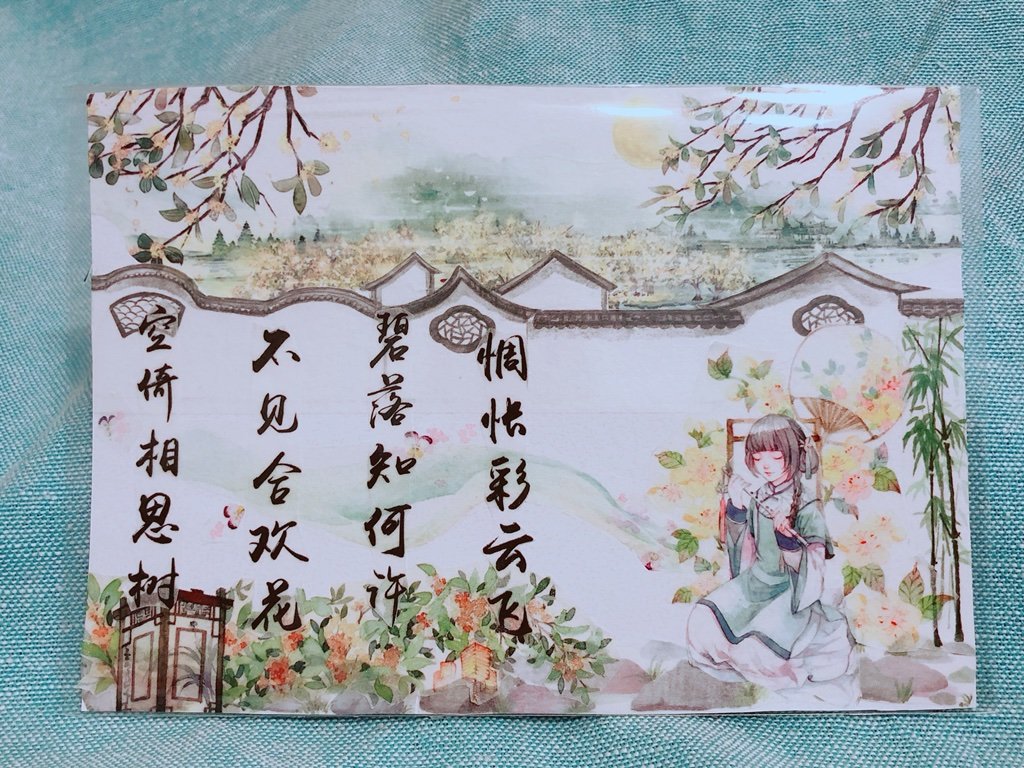 惆怅彩云飞
碧落知何许
不见合欢花
空倚相思树